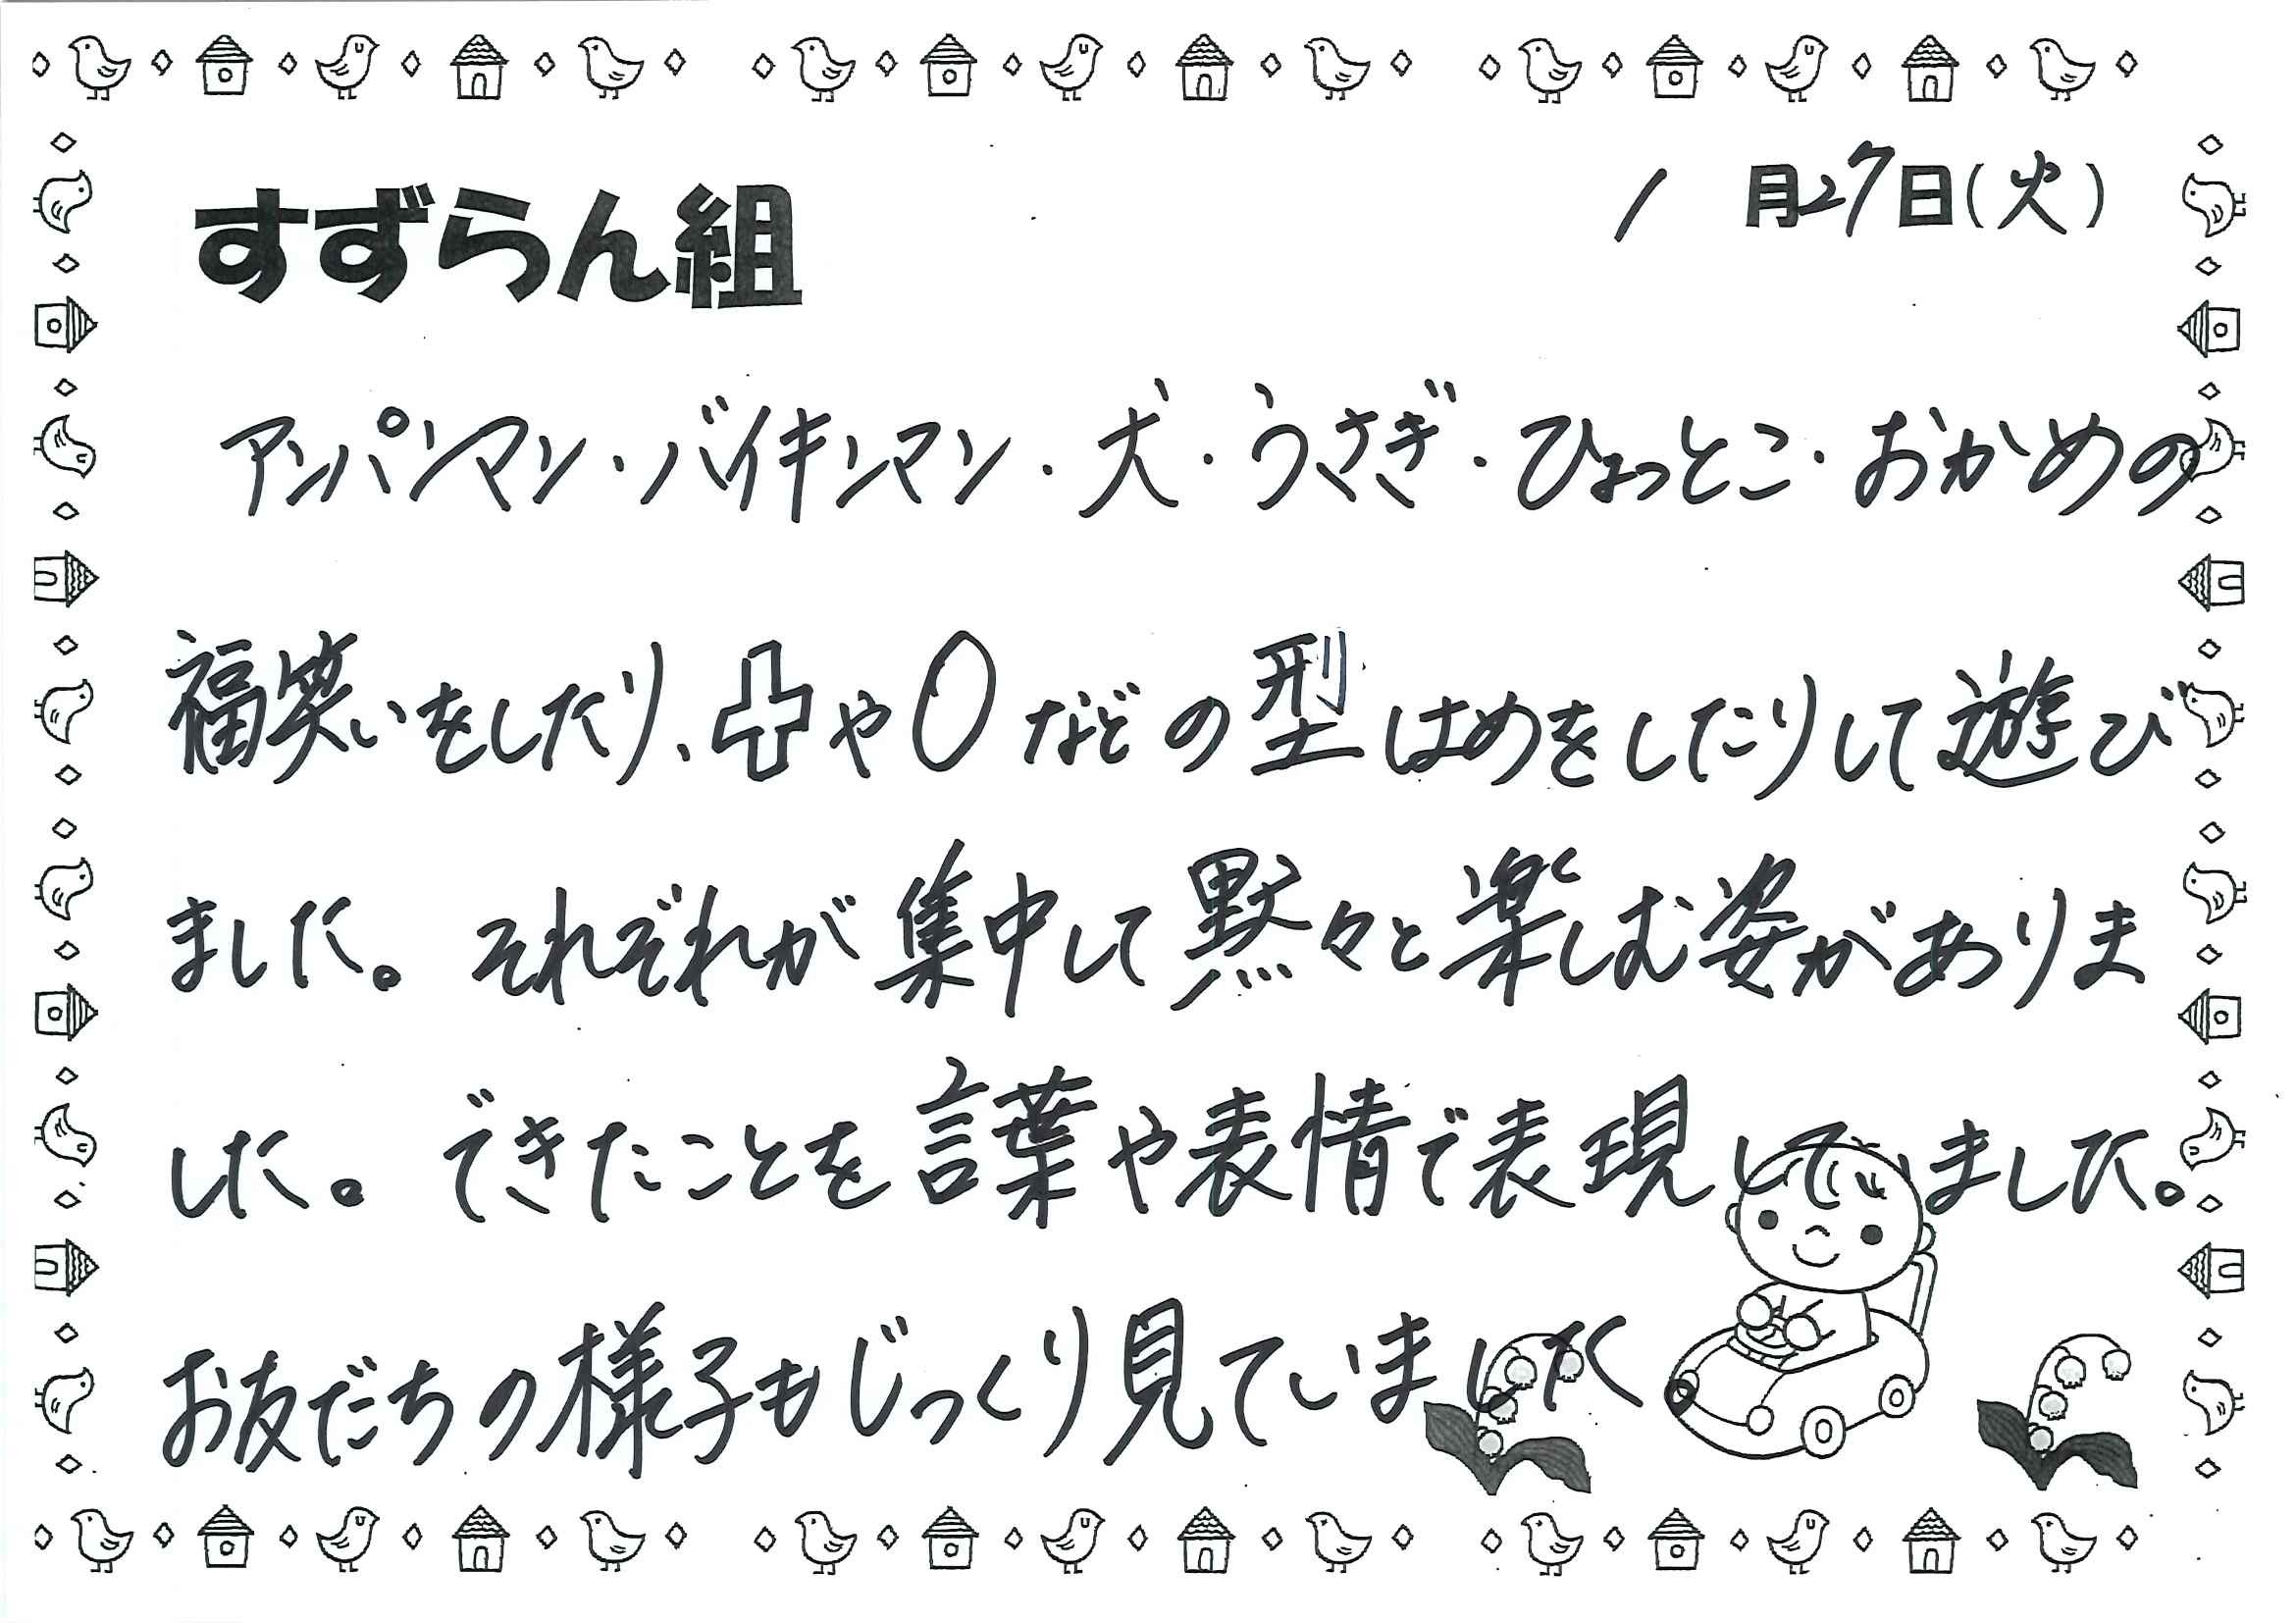 すずらん組
1月27日(火)
アンパンマン・バイキンマン・犬・うさぎ・ひょっとこ・おかめの
福笑いをしたり、凸や0などの型はめをしたりして遊び
ました。それぞれが集中して黙々と楽しむ姿がありま
した。できたことを言葉や表情で表現していました。
お友だちの様子もじっくり見ていました。